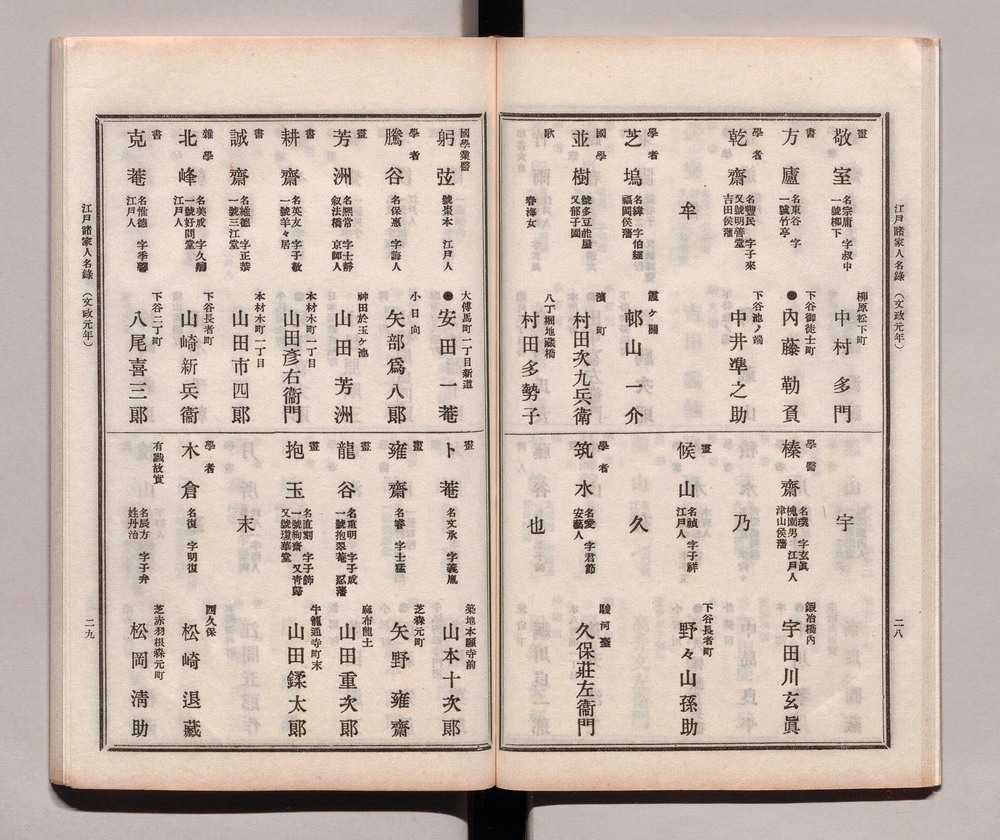 江戶諸家人名錄 (文政元年)
畫
敬室
名宗庸 字叔中
一號柳下
柳原松下町
中村多門
書
方廬
名東谷 字
一號竹亭
下谷御徒士町
●內藤勒負
學者
乾齋
名豐民 字子來
又號明善堂
吉田侯藩
下谷池ノ端
中井準之助
牟
學者
芝塢
名緯 字伯經
福岡侯藩
霞ケ關
邨山一介
國學
並樹
號多豆能屋
又郁子園
濱町
村田次九兵衞
歌
春海女
八丁堀地藏橋
村田多勢子
宇
學醫
榛齋
字玄眞
槐園男 江戶人
津山侯藩
鍛冶橋內
宇田川玄眞
乃
畫
候山
名禎 字子祥
江戶人
下谷長者町
野々山孫助
久
學者
筑水
名愛 字君節
安藝人
駿河臺
久保莊左衞門
也
二八
國學業醫
躬弦
號棗本 江戶人
大傳馬町二丁目新道
●安田一菴
學者
騰谷
名保惠 字誨人
小日向
矢部爲八郞
畫
芳洲
名熙常 字士靜
叙法橋 京師人
神田於玉ケ池
山田芳洲
書
耕齋
名英友 字子敬
一號羊々居
本材木町一丁目
山田彥右衞門
書
誠齋
名維德 字正恭
一號三江堂
本材木町一丁目
山田市四郞
雜學
北峰
名美成 字久卿
一號好問堂
江戶人
下谷長者町
山崎新兵衞
書
克菴
名惟德 字季馨
江戶人
下谷二丁町
八尾喜三郞
畫
卜菴
名文承 字義胤
築地本願寺前
山本十次郞
畫
雍齋
名睿 字士猛
芝森元町
矢野雍齋
畫
龍谷
名重明 字子成
一號抱翠菴 忍藩
麻布龍土
山田重次郞
畫
抱玉
名直溫 字子飾
一號絢齋 又靑歸
又號瓊華堂
牛籠通寺町
山田鍒太郞
末
學者
木倉
名復 字明復
四久保
松崎退藏
有職故實
名辰方 字子弁
姓丹治
芝赤羽根森元町
松岡淸助
江戶諸家人名錄 (文政元年)
二九